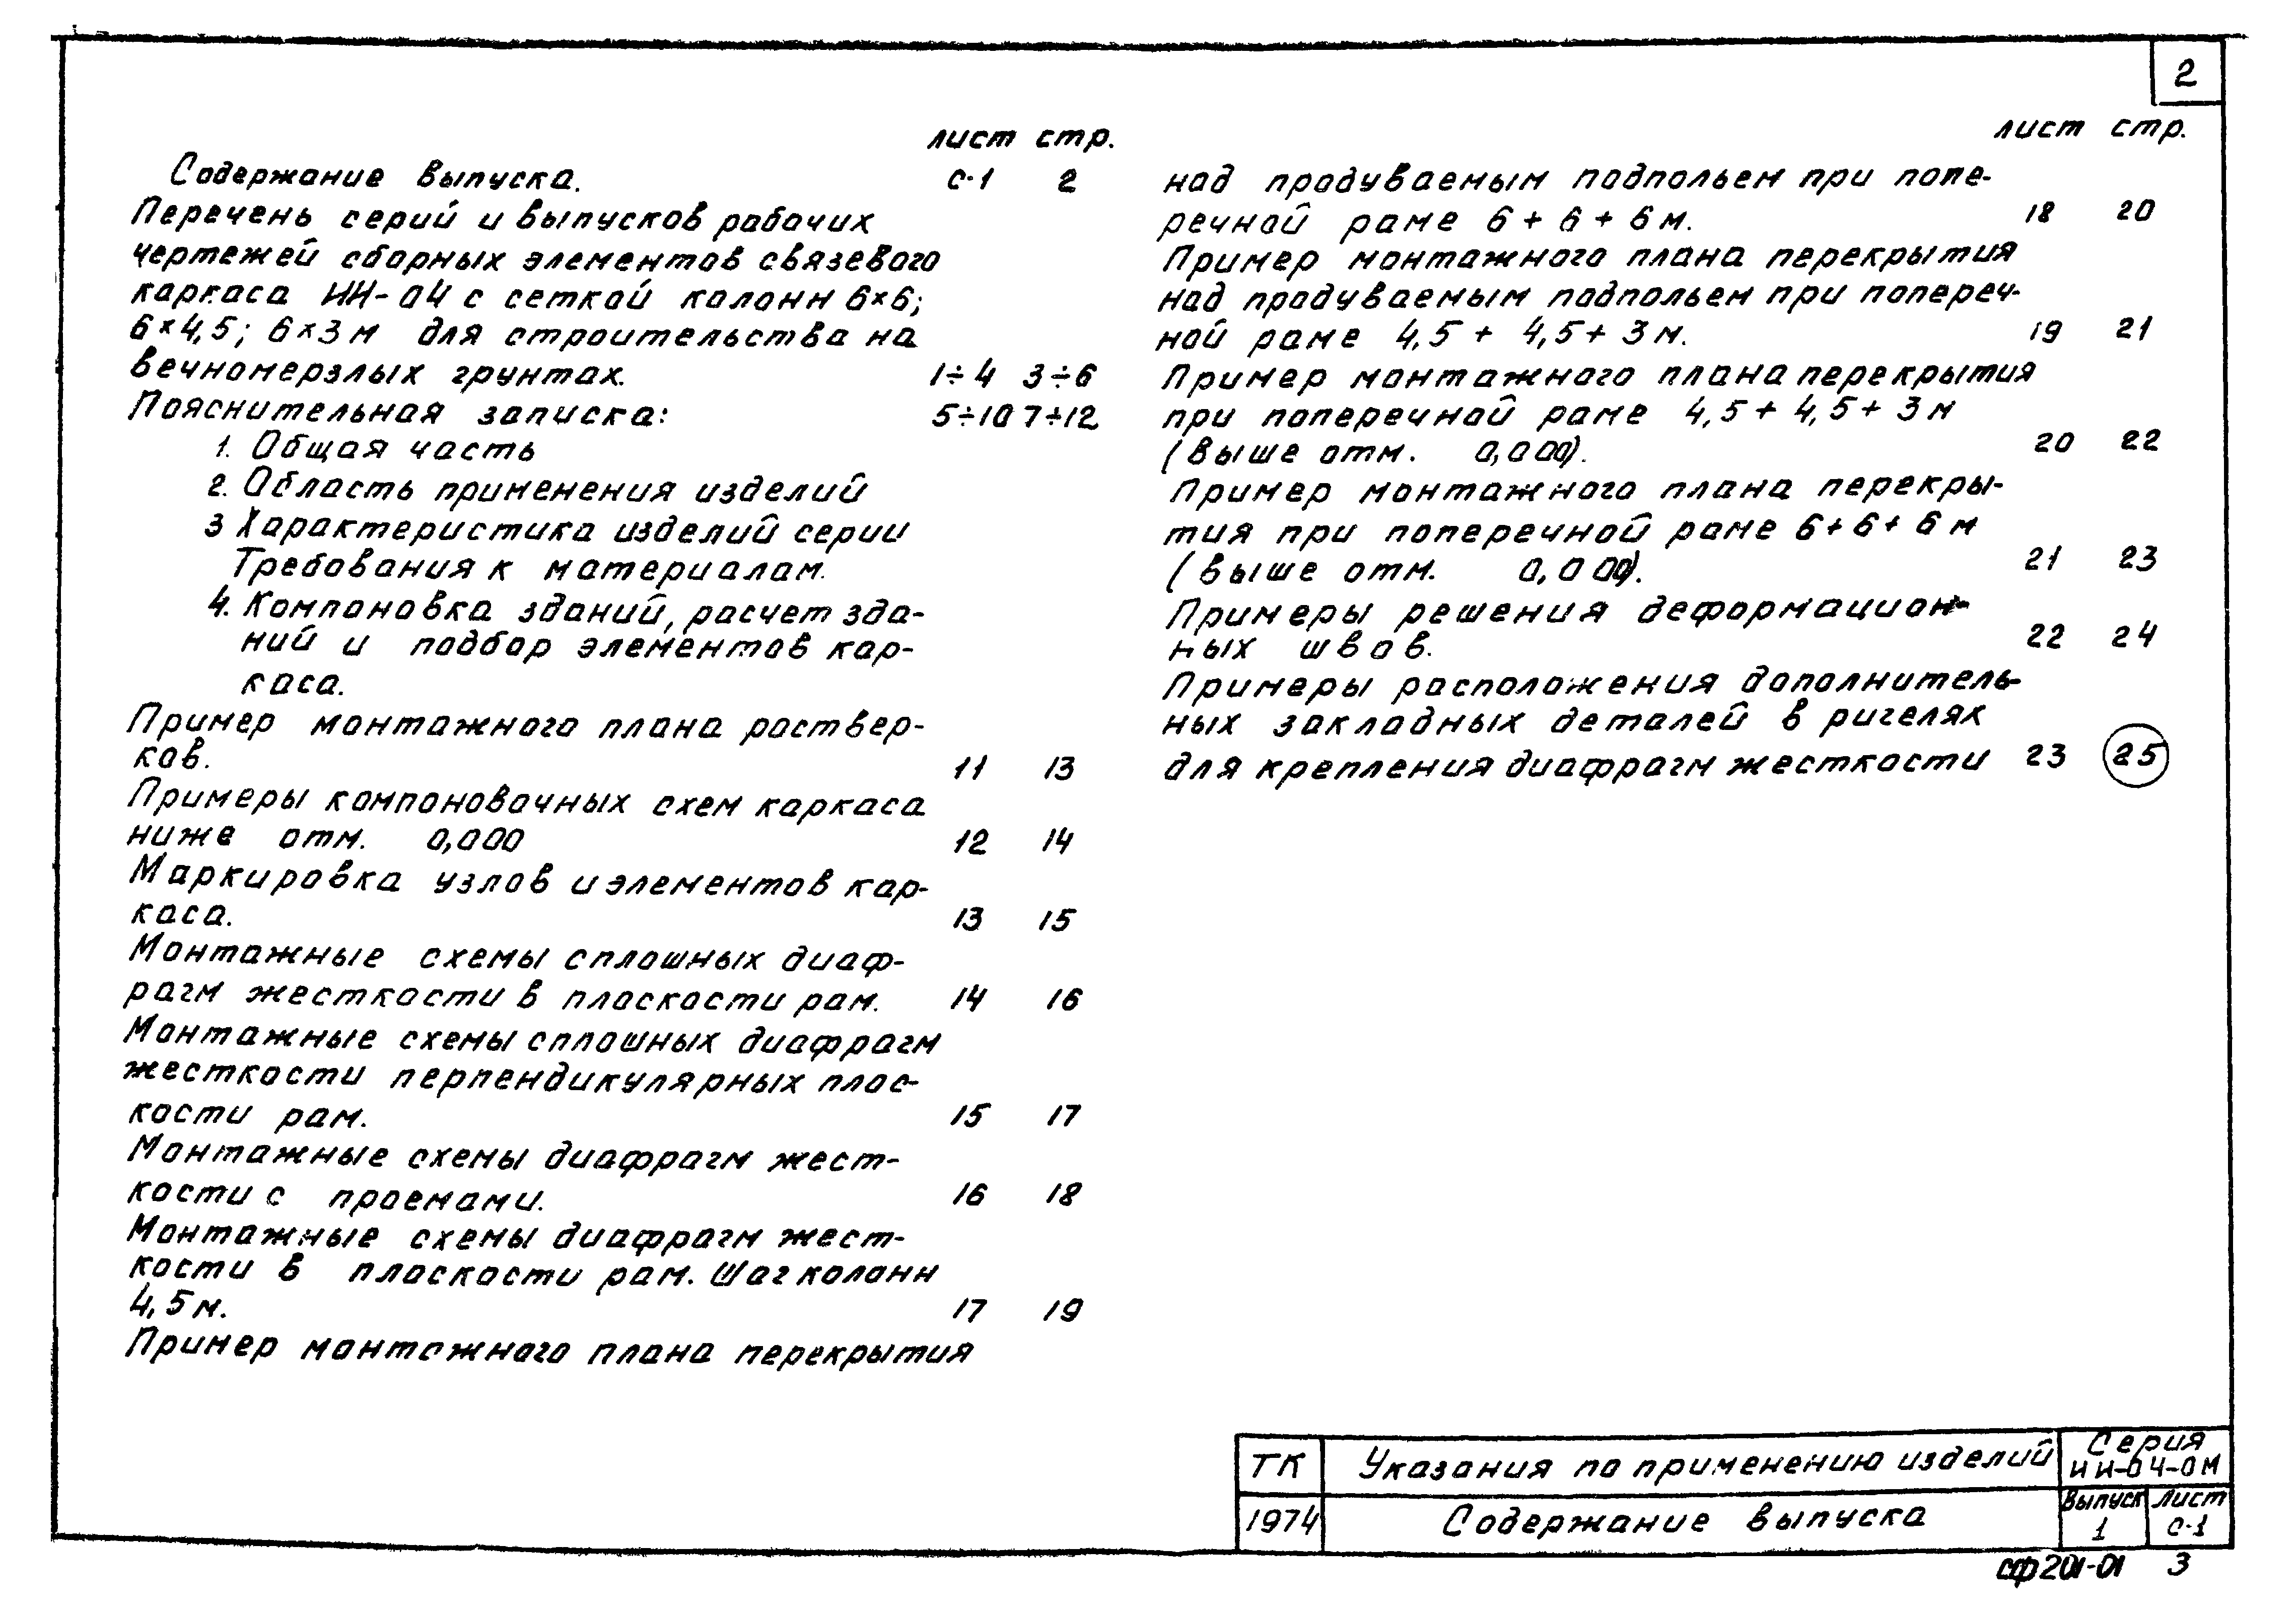 2
лист стр.
Содержание выпуска. с-1 2
Перечень серий и выпусков рабочих
чертежей сборных элементов связевого
каркаса ИИ-04 с сеткой колонн 6×6;
6×4,5; 6×3м для строительства на
вечномерзлых грунтах. 1÷4 3÷6
Пояснительная записка: 5÷10 7÷12
1. Общая часть
2. Область применения изделий
3 Характеристика изделий серии
Требования к материалам.
4. Компоновка зданий, расчет зда-
ний и подбор элементов кар-
каса.
Пример монтажного плана роствер-
ков. 11 13
Примеры компоновочных схем каркаса
ниже отм. 0,000 12 14
Маркировка узлов и элементов кар-
каса. 13 15
Монтажные схемы сплошных диаф-
рагм жесткости в плоскости рам. 14 16
Монтажные схемы сплошных диафрагм
жесткости перпендикулярных плос-
кости рам. 15 17
Монтажные схемы диафрагм жест-
кости с проемами. 16 18
Монтажные схемы диафрагм жест-
кости в плоскости рам. Шаг колонн
4,5м. 17 19
Пример монтажного плана перекрытия
лист стр.
над продуваемым подпольем при попе-
речной раме 6+6+6м. 18 20
Пример монтажного плана перекрытия
над продуваемым подпольем при попереч-
ной раме 4,5+ 4,5+ 3м. 19 21
Пример монтажного плана перекрытия
при поперечной раме 4,5+ 4,5+ 3м
(выше отм. 0,000). 20 22
Пример монтажного плана перекры-
тия при поперечной раме 6+6+6м
(выше отм. 0,000). 21 23
Примеры решения деформацион-
ных швов. 22 24
Примеры расположения дополнитель-
ных закладных деталей в ригелях
для крепления диафрагм жесткости 23 25
ТК Указания по применению изделий Серия
ИИ-04-0М
1974 Содержание выпуска Выпуск Лист
1 С-1
сф201-01 3